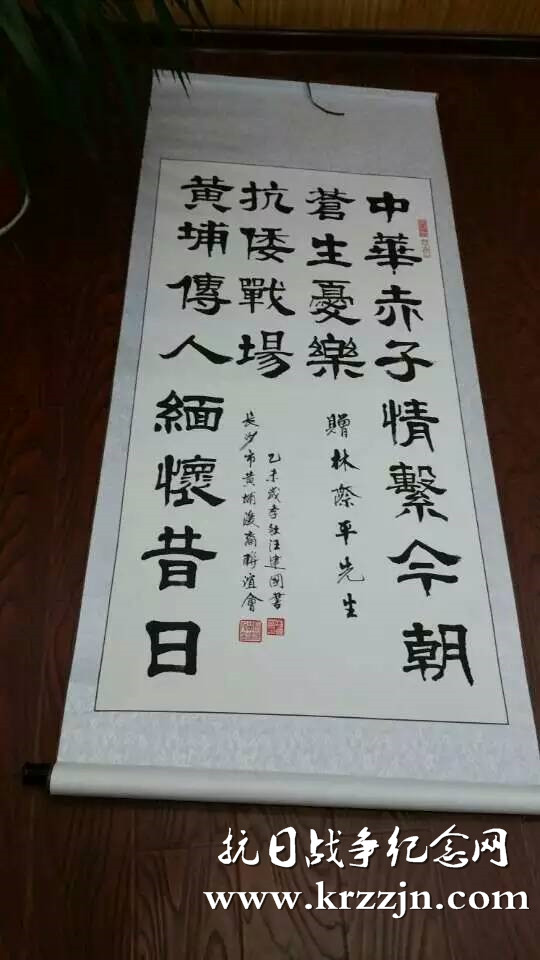 中華赤子情繫今朝
蒼生憂樂
贈林際平先生
黃埔傳人緬懷昔日
抗倭戰場
乙未歲季秋汪建國書
長沙市黃埔後裔聯誼會
抗日战争纪念网
www.krzzjn.com